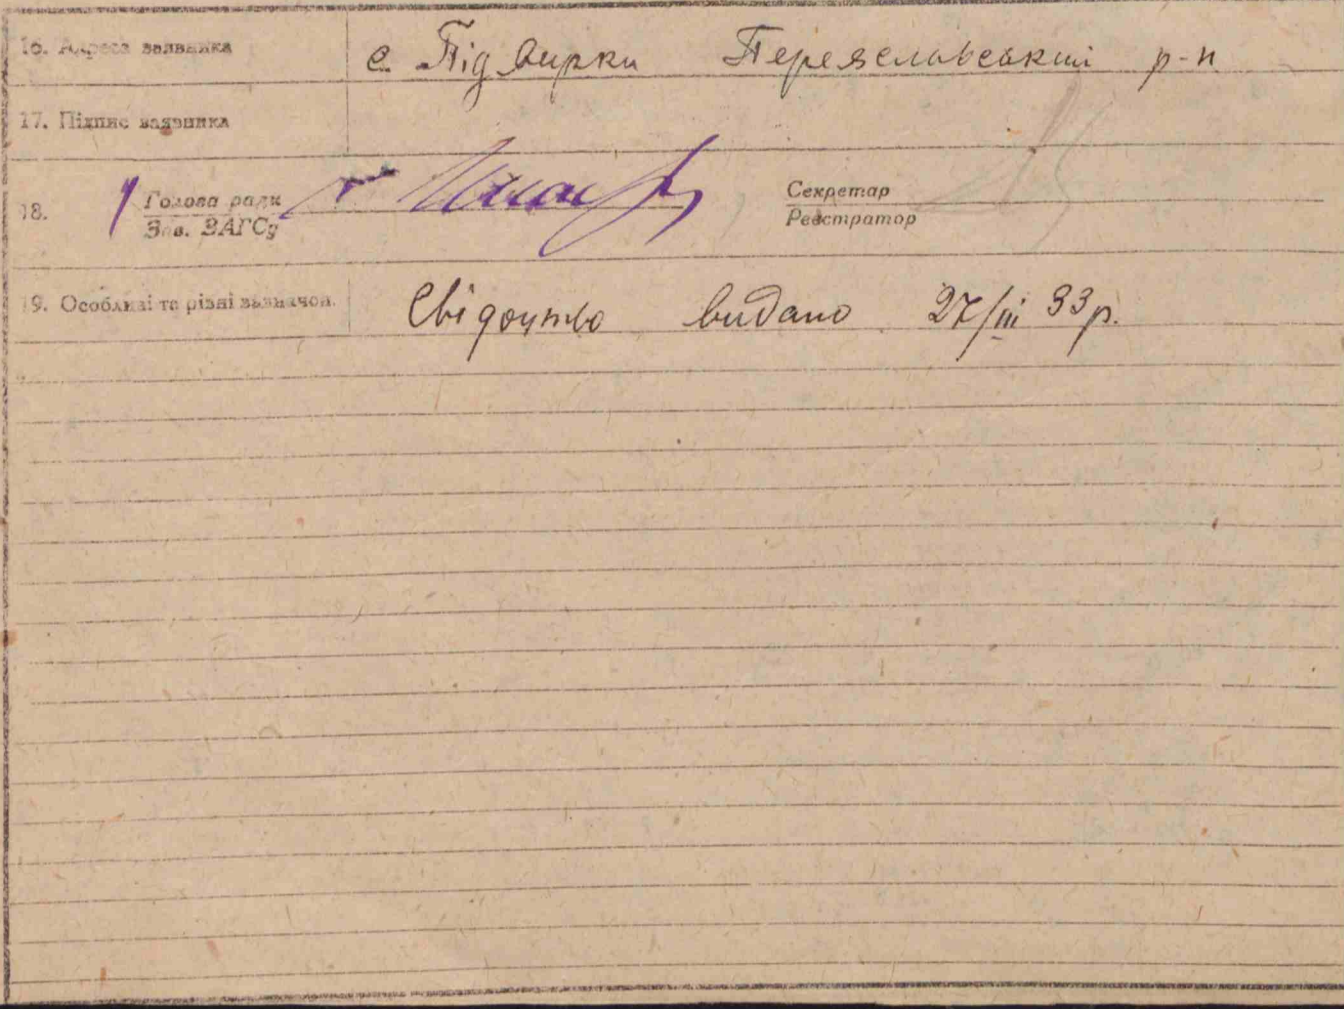 16. Адреса заявника с. Підвирки Переяславський р-н
17. Підпис заявника
18. Голова ради Секретар
Зав. ЗАГСу Реєстратор
19. Особливі та різні зазначон. Свідоцтво видано 27/III 33 р.